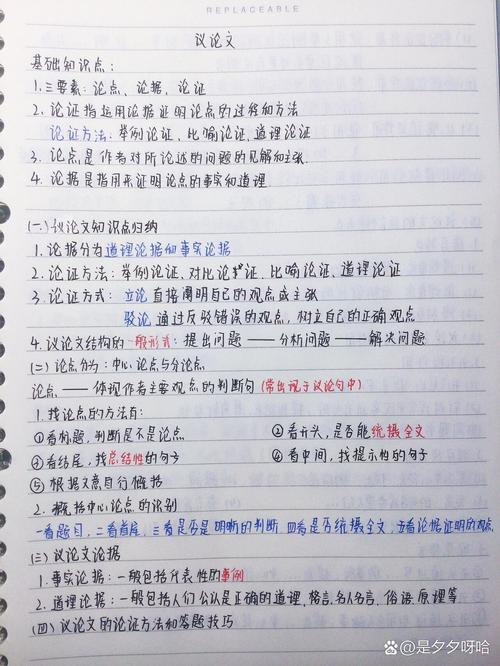 REPLACEABLE
议论文
基础知识点:
1.三要素:论点、论据、论证
2.论证指运用论据证明论点的过程和方法
论证方法:举例论证、比喻论证、道理论证
3.论点是作者对所论述的问题的见解和主张.
4.论据是指用来证明论点的事实和道理
(一)议论文知识点归纳
1.论据分为道理论据和事实论据
2.论证方法:举例论证、对比论证、比喻论证、道理论证
3.论证方式:立论 直接阐明自己的观点或主张
驳论 通过反驳错误的观点,树立自己的正确观点
4.议论文结构的一般形式:提出问题——分析问题——解决问题
(二)论点分为:中心论点与分论点
论点——体现作者主要观点的判断句(常出现于议论句中)
1.找论点的方法有:
①看标题,判断是不是论点 ②看开头,是否能统摄全文
③看结尾,找总结性的句子 ④看中间,找提示性的句子
⑤根据文意自行概括
2.概括中心论点的识别
一看题目,二看首尾,三看是否是明晰的判断 四看是否统摄全文,五看论据证明的观点
(三)议论文论据
1.事实论据:一般包括代表性的事例
2.道理论据:一般包括人们公认是正确的道理、格言、名人名言、俗语、原理等
(四)议论文的论证方法和答题技巧
@是夕夕呀哈